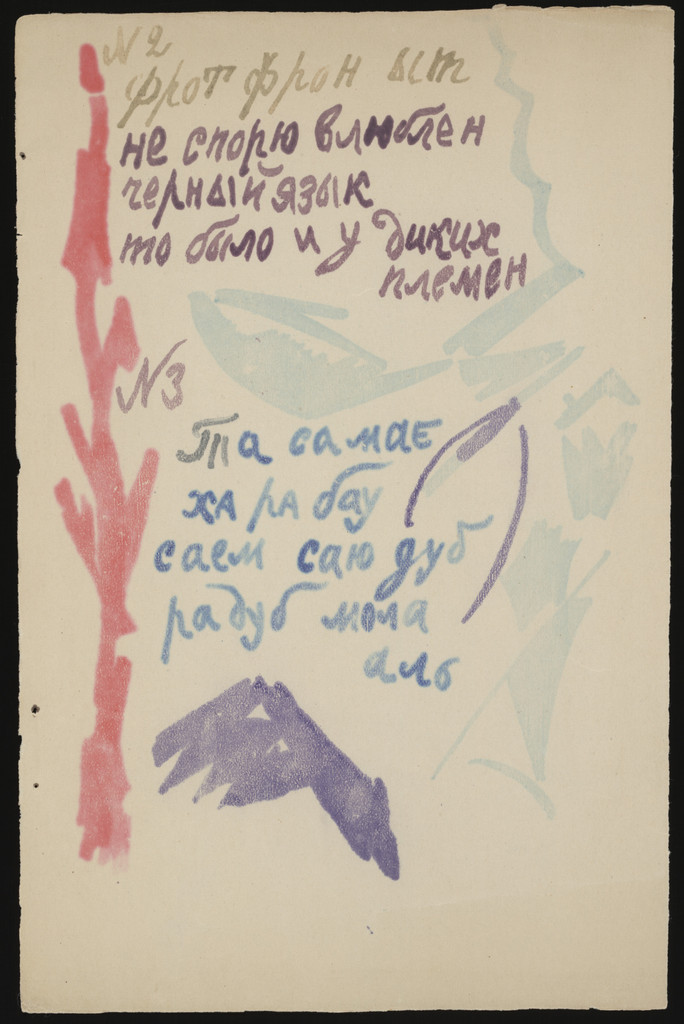 №2
фрот фрон ыт
не спорю влюблен
черный язык
то было и у диких
племен
№3
Та са мае
ха ра бау
саем саю дуб
радуб мола
аль